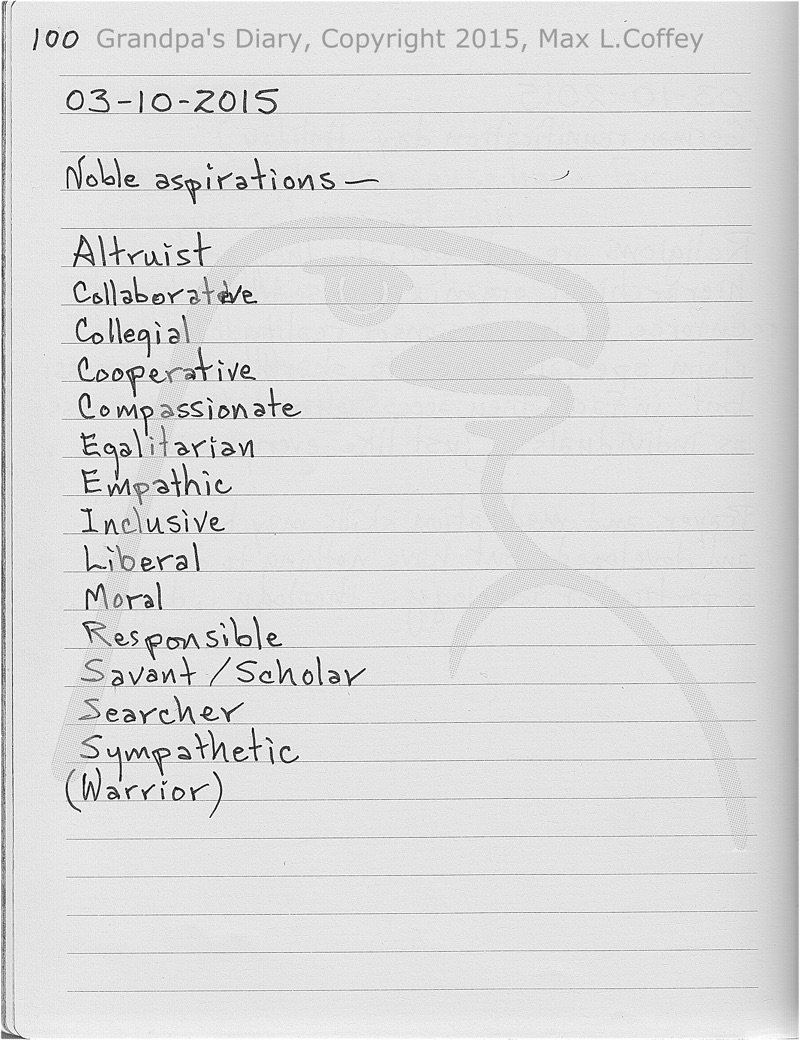 100 Grandpa's Diary, Copyright 2015, Max L.Coffey
03-10-2015
Noble aspirations—
Altruist
Collaborative
Collegial
Cooperative
Compassionate
Egalitarian
Empathic
Inclusive
Liberal
Moral
Responsible
Savant/Scholar
Searcher
Sympathetic
(Warrior)